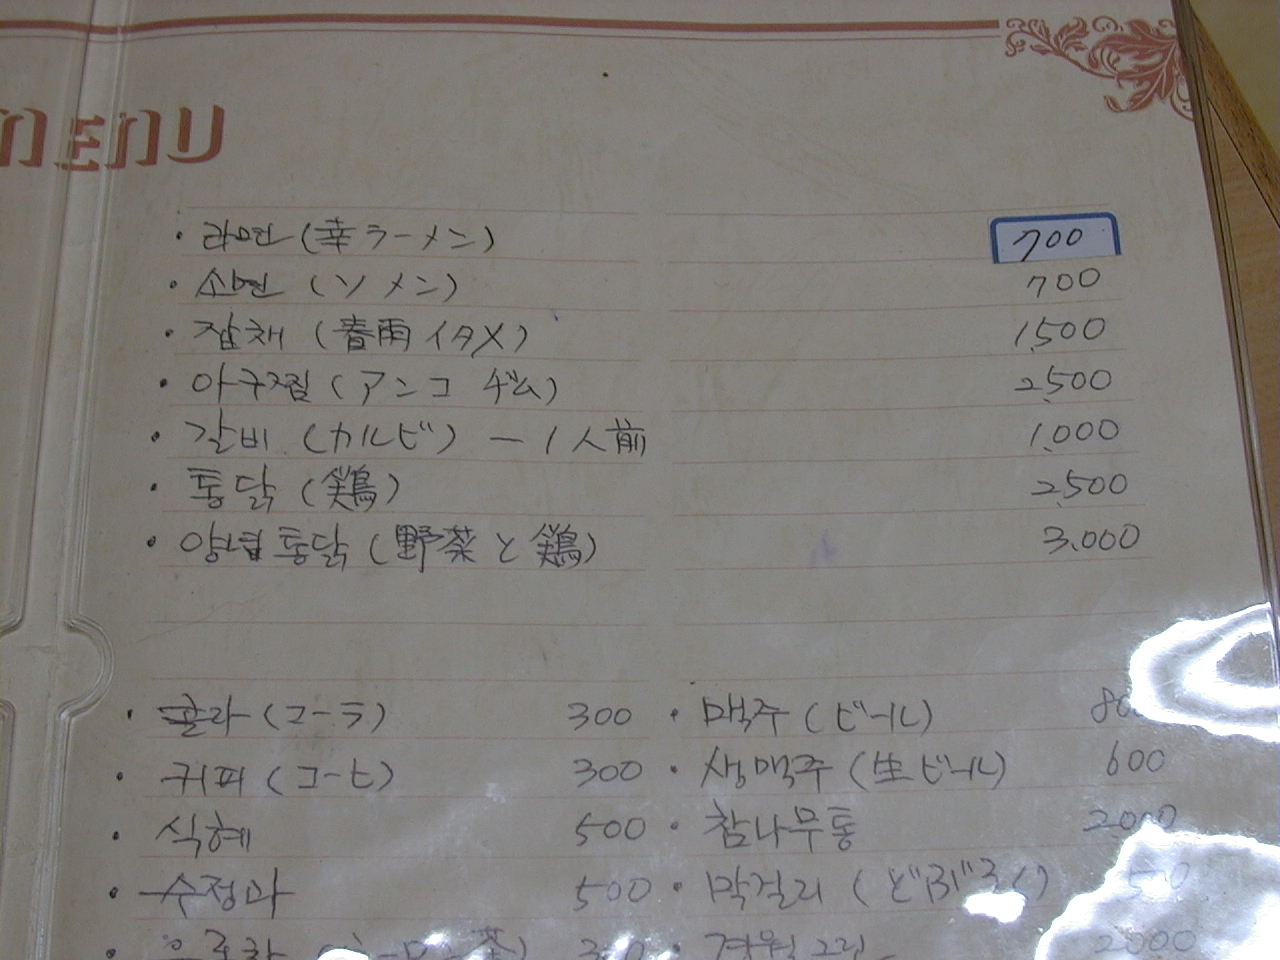 MENU
· 라면 (幸ラーメン) 700
· 소면 (ソメン) 700
· 잡채 (春雨イタメ) 1,500
· 아구찜 (アンコ ヂム) 2,500
· 갈비 (カルビ) ー 1人前 1,000
· 통닭 (鶏) 2,500
· 양념통닭 (野菜と鶏) 3,000
· 콜라 (コーラ) 300 · 맥주 (ビール)
· 커피 (コーヒ) 300 · 생맥주 (生ビール) 600
· 식혜 500 · 참나무통 2000
· 수정과 500 · 막걸리 (どぶろく)
2000